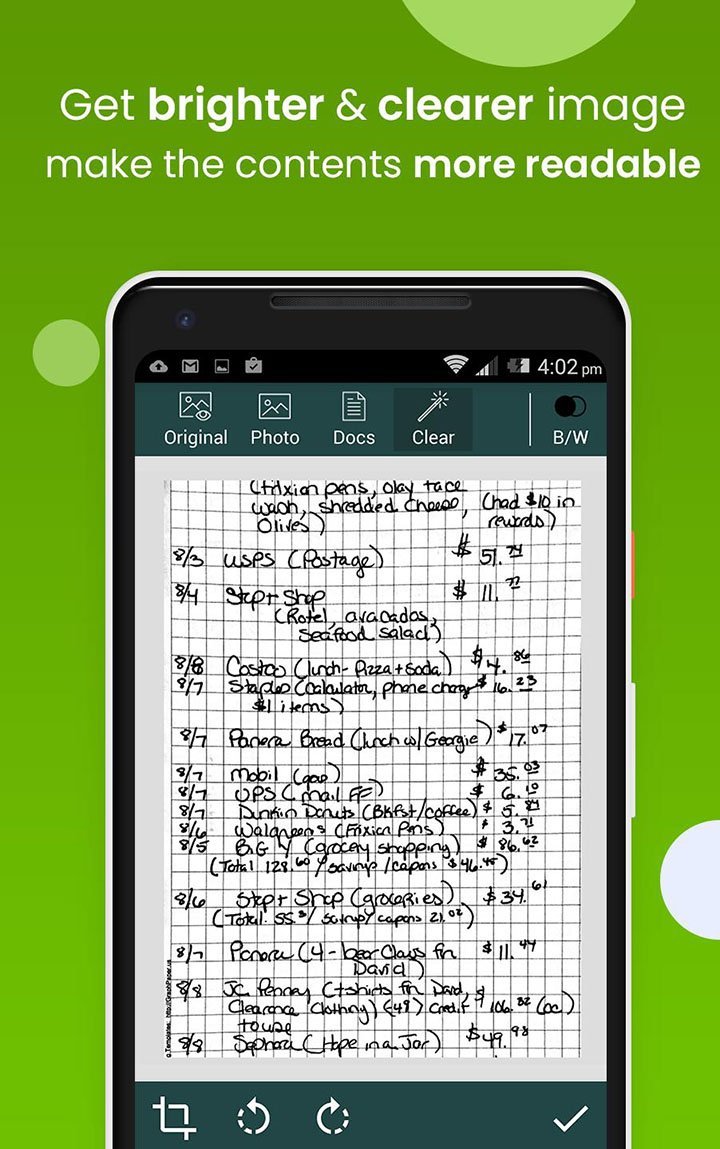 Get brighter & clearer image
make the contents more readable
4:02 pm
Original Photo Docs Clear B/W
(Frixion pens, olay face
wash, shredded cheese, (had $10 in
Olives) rewards)
8/3 USPS (Postage) $ 51.74
8/4 Stop + Shop $ 11.77
(Rotel, avacados,
seafood salad)
8/8 Costco (lunch- Pizza + Soda) $ 4.86
8/7 Staples (Calculator, phone charge $ 16.23
$1 items)
8/7 Panera Bread (lunch w/ Georgie) $ 17.07
8/7 Mobil (gas) $ 35.03
8/7 UPS (mail FF) $ 6.10
8/7 Dunkin Donuts (Bkfst/coffee) $ 5.84
8/6 Walgreens (Frixion Pens) $ 3.71
8/5 Big Y (grocery shopping) $ 86.62
(Total 128.60 / savings /capons $46.45)
8/6 Stop + Shop (groceries) $34.61
(Total. 55. / savings/ capons 21.02)
8/7 Panera (4 - bear Claws for $ 11.44
David)
8/8 JC Penney (t-shirts for David, $
Clearance Clothing) (-48) credit 106.82 (cc)
to use
8/8 Sephora (Hope in a Jar) $49.98
Templates: http://GraphPaper.us